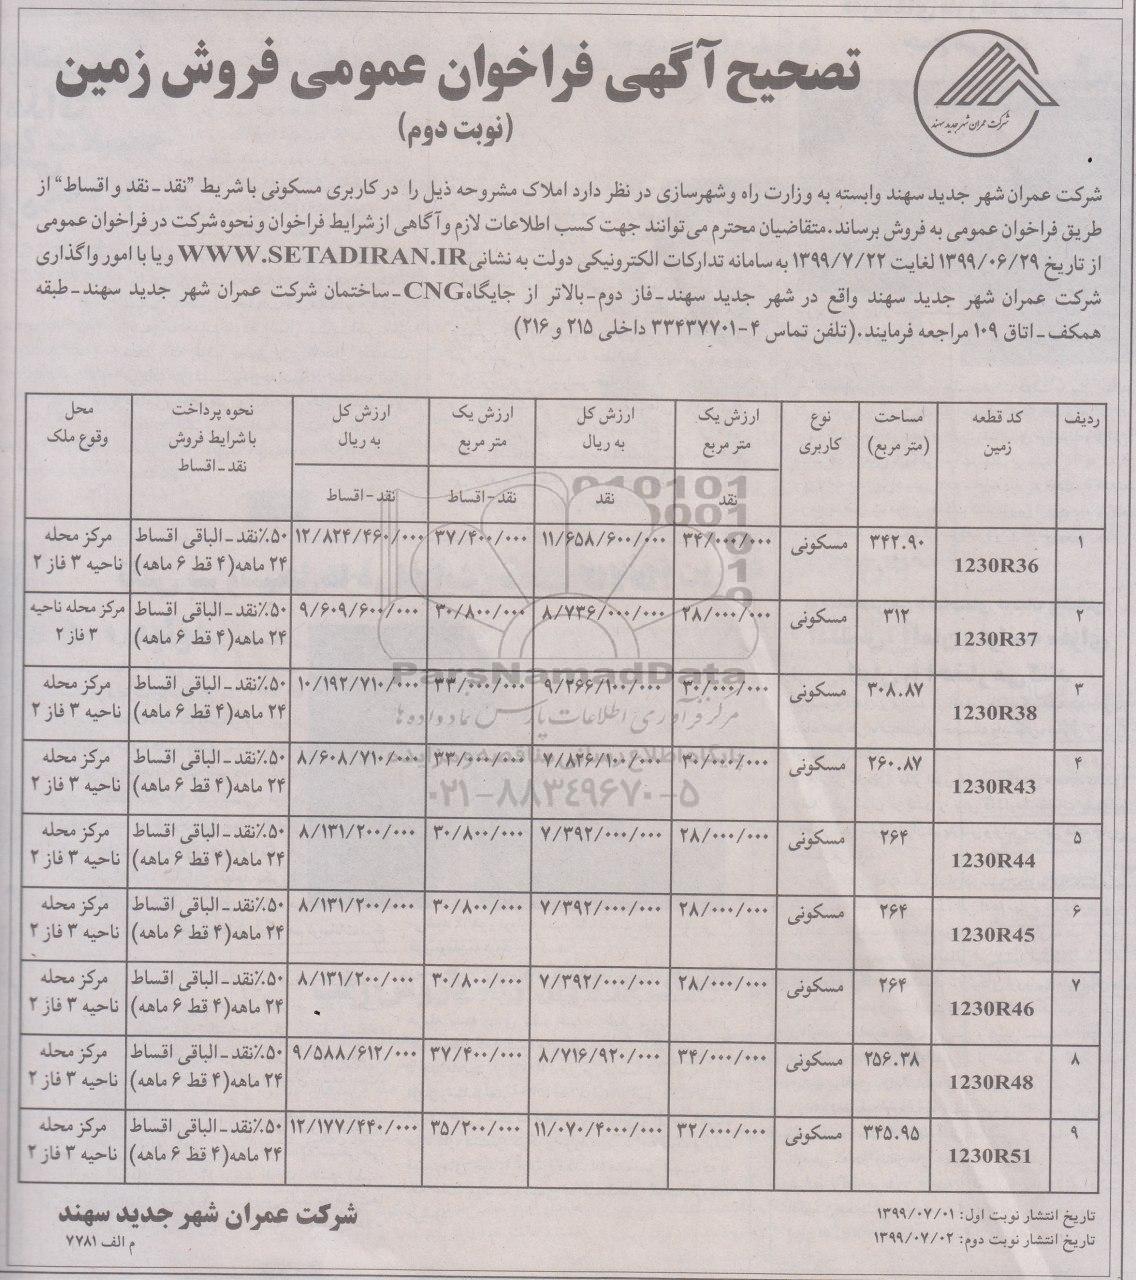 تصحیح آگهی فراخوان عمومی فروش زمین
(نوبت دوم)
شرکت عمران شهر جدید سهند
شرکت عمران شهر جدید سهند وابسته به وزارت راه و شهرسازی در نظر دارد املاک مشروحه ذیل را در کاربری مسکونی با شریط "نقد-نقد و اقساط" از
طریق فراخوان عمومی به فروش برساند.متقاضیان محترم می‌توانند جهت کسب اطلاعات لازم و آگاهی از شرایط فراخوان و نحوه شرکت در فراخوان عمومی
از تاریخ ۱۳۹۹/۰۶/۲۹ لغایت ۱۳۹۹/۷/۲۲ به سامانه تدارکات الکترونیکی دولت به نشانی WWW.SETADIRAN.IR و یا با امور واگذاری
شرکت عمران شهر جدید سهند واقع در شهر جدید سهند-فاز دوم-بالاتر از جایگاه CNG-ساختمان شرکت عمران شهر جدید سهند-طبقه
همکف-اتاق ۱۰۹ مراجعه فرمایند.(تلفن تماس ۴-۳۳۴۳۷۷۰۱ داخلی ۲۱۵ و ۲۱۶)
ردیف | کد قطعه زمین | مساحت (متر مربع) | نوع کاربری | ارزش یک متر مربع نقد | ارزش کل به ریال نقد | ارزش یک متر مربع نقد-اقساط | ارزش کل به ریال نقد-اقساط | نحوه پرداخت با شرایط فروش نقد-اقساط | محل وقوع ملک
۱ | 1230R36 | ۳۴۲.۹۰ | مسکونی | ۳۴/۰۰۰/۰۰۰ | ۱۱/۶۵۸/۶۰۰/۰۰۰ | ۳۷/۴۰۰/۰۰۰ | ۱۲/۸۲۴/۴۶۰/۰۰۰ | ۵۰٪نقد-الباقی اقساط ۲۴ ماهه(۴ قط ۶ ماهه) | مرکز محله ناحیه ۳ فاز ۲
۲ | 1230R37 | ۳۱۲ | مسکونی | ۲۸/۰۰۰/۰۰۰ | ۸/۷۳۶/۰۰۰/۰۰۰ | ۳۰/۸۰۰/۰۰۰ | ۹/۶۰۹/۶۰۰/۰۰۰ | ۵۰٪نقد-الباقی اقساط ۲۴ ماهه(۴ قط ۶ ماهه) | مرکز محله ناحیه ۳ فاز ۲
۳ | 1230R38 | ۳۰۸.۸۷ | مسکونی | ۳۰/۰۰۰/۰۰۰ | ۹/۲۶۶/۱۰۰/۰۰۰ | ۳۳/۰۰۰/۰۰۰ | ۱۰/۱۹۲/۷۱۰/۰۰۰ | ۵۰٪نقد-الباقی اقساط ۲۴ ماهه(۴ قط ۶ ماهه) | مرکز محله ناحیه ۳ فاز ۲
۴ | 1230R43 | ۲۶۰.۸۷ | مسکونی | ۳۰/۰۰۰/۰۰۰ | ۷/۸۲۶/۱۰۰/۰۰۰ | ۳۳/۰۰۰/۰۰۰ | ۸/۶۰۸/۷۱۰/۰۰۰ | ۵۰٪نقد-الباقی اقساط ۲۴ ماهه(۴ قط ۶ ماهه) | مرکز محله ناحیه ۳ فاز ۲
۵ | 1230R44 | ۲۶۴ | مسکونی | ۲۸/۰۰۰/۰۰۰ | ۷/۳۹۲/۰۰۰/۰۰۰ | ۳۰/۸۰۰/۰۰۰ | ۸/۱۳۱/۲۰۰/۰۰۰ | ۵۰٪نقد-الباقی اقساط ۲۴ ماهه(۴ قط ۶ ماهه) | مرکز محله ناحیه ۳ فاز ۲
۶ | 1230R45 | ۲۶۴ | مسکونی | ۲۸/۰۰۰/۰۰۰ | ۷/۳۹۲/۰۰۰/۰۰۰ | ۳۰/۸۰۰/۰۰۰ | ۸/۱۳۱/۲۰۰/۰۰۰ | ۵۰٪نقد-الباقی اقساط ۲۴ ماهه(۴ قط ۶ ماهه) | مرکز محله ناحیه ۳ فاز ۲
۷ | 1230R46 | ۲۶۴ | مسکونی | ۲۸/۰۰۰/۰۰۰ | ۷/۳۹۲/۰۰۰/۰۰۰ | ۳۰/۸۰۰/۰۰۰ | ۸/۱۳۱/۲۰۰/۰۰۰ | ۵۰٪نقد-الباقی اقساط ۲۴ ماهه(۴ قط ۶ ماهه) | مرکز محله ناحیه ۳ فاز ۲
۸ | 1230R48 | ۲۵۶.۳۸ | مسکونی | ۳۴/۰۰۰/۰۰۰ | ۸/۷۱۶/۹۲۰/۰۰۰ | ۳۷/۴۰۰/۰۰۰ | ۹/۵۸۸/۶۱۲/۰۰۰ | ۵۰٪نقد-الباقی اقساط ۲۴ ماهه(۴ قط ۶ ماهه) | مرکز محله ناحیه ۳ فاز ۲
۹ | 1230R51 | ۳۴۵.۹۵ | مسکونی | ۳۲/۰۰۰/۰۰۰ | ۱۱/۰۷۰/۴۰۰۰/۰۰۰ | ۳۵/۲۰۰/۰۰۰ | ۱۲/۱۷۷/۴۴۰/۰۰۰ | ۵۰٪نقد-الباقی اقساط ۲۴ ماهه(۴ قط ۶ ماهه) | مرکز محله ناحیه ۳ فاز ۲
ParsNamadData
مرکز فرآوری اطلاعات پارس نماد داده‌ها
۰۲۱-۸۸۳۴۹۶۷۰-۵
تاریخ انتشار نوبت اول: ۱۳۹۹/۰۷/۰۱
تاریخ انتشار نوبت دوم: ۱۳۹۹/۰۷/۰۲
شرکت عمران شهر جدید سهند
م الف ۷۷۸۱